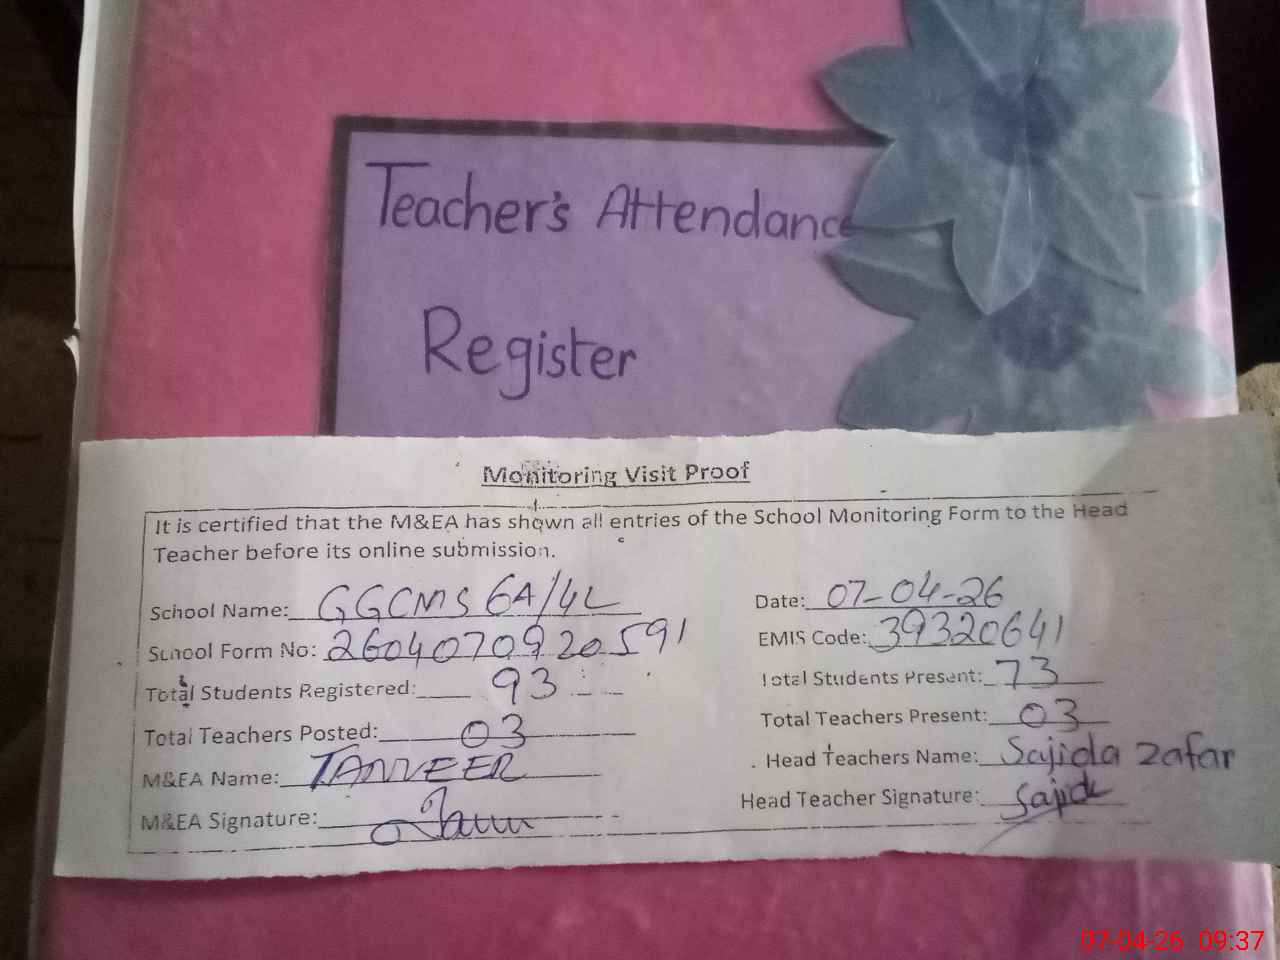 Teacher's Attendance
Register
Monitoring Visit Proof
It is certified that the M&EA has shown all entries of the School Monitoring Form to the Head
Teacher before its online submission.
School Name: GGCMS 6A/4L
Date: 07-04-26
School Form No: 2604070920591
EMIS Code: 39320641
Total Students Registered: 93
Total Students Present: 73
Total Teachers Posted: 03
Total Teachers Present: 03
M&EA Name: TANVEER
Head Teachers Name: Sajida Zafar
M&EA Signature:
Head Teacher Signature: Sajida
07-04-26 09:37